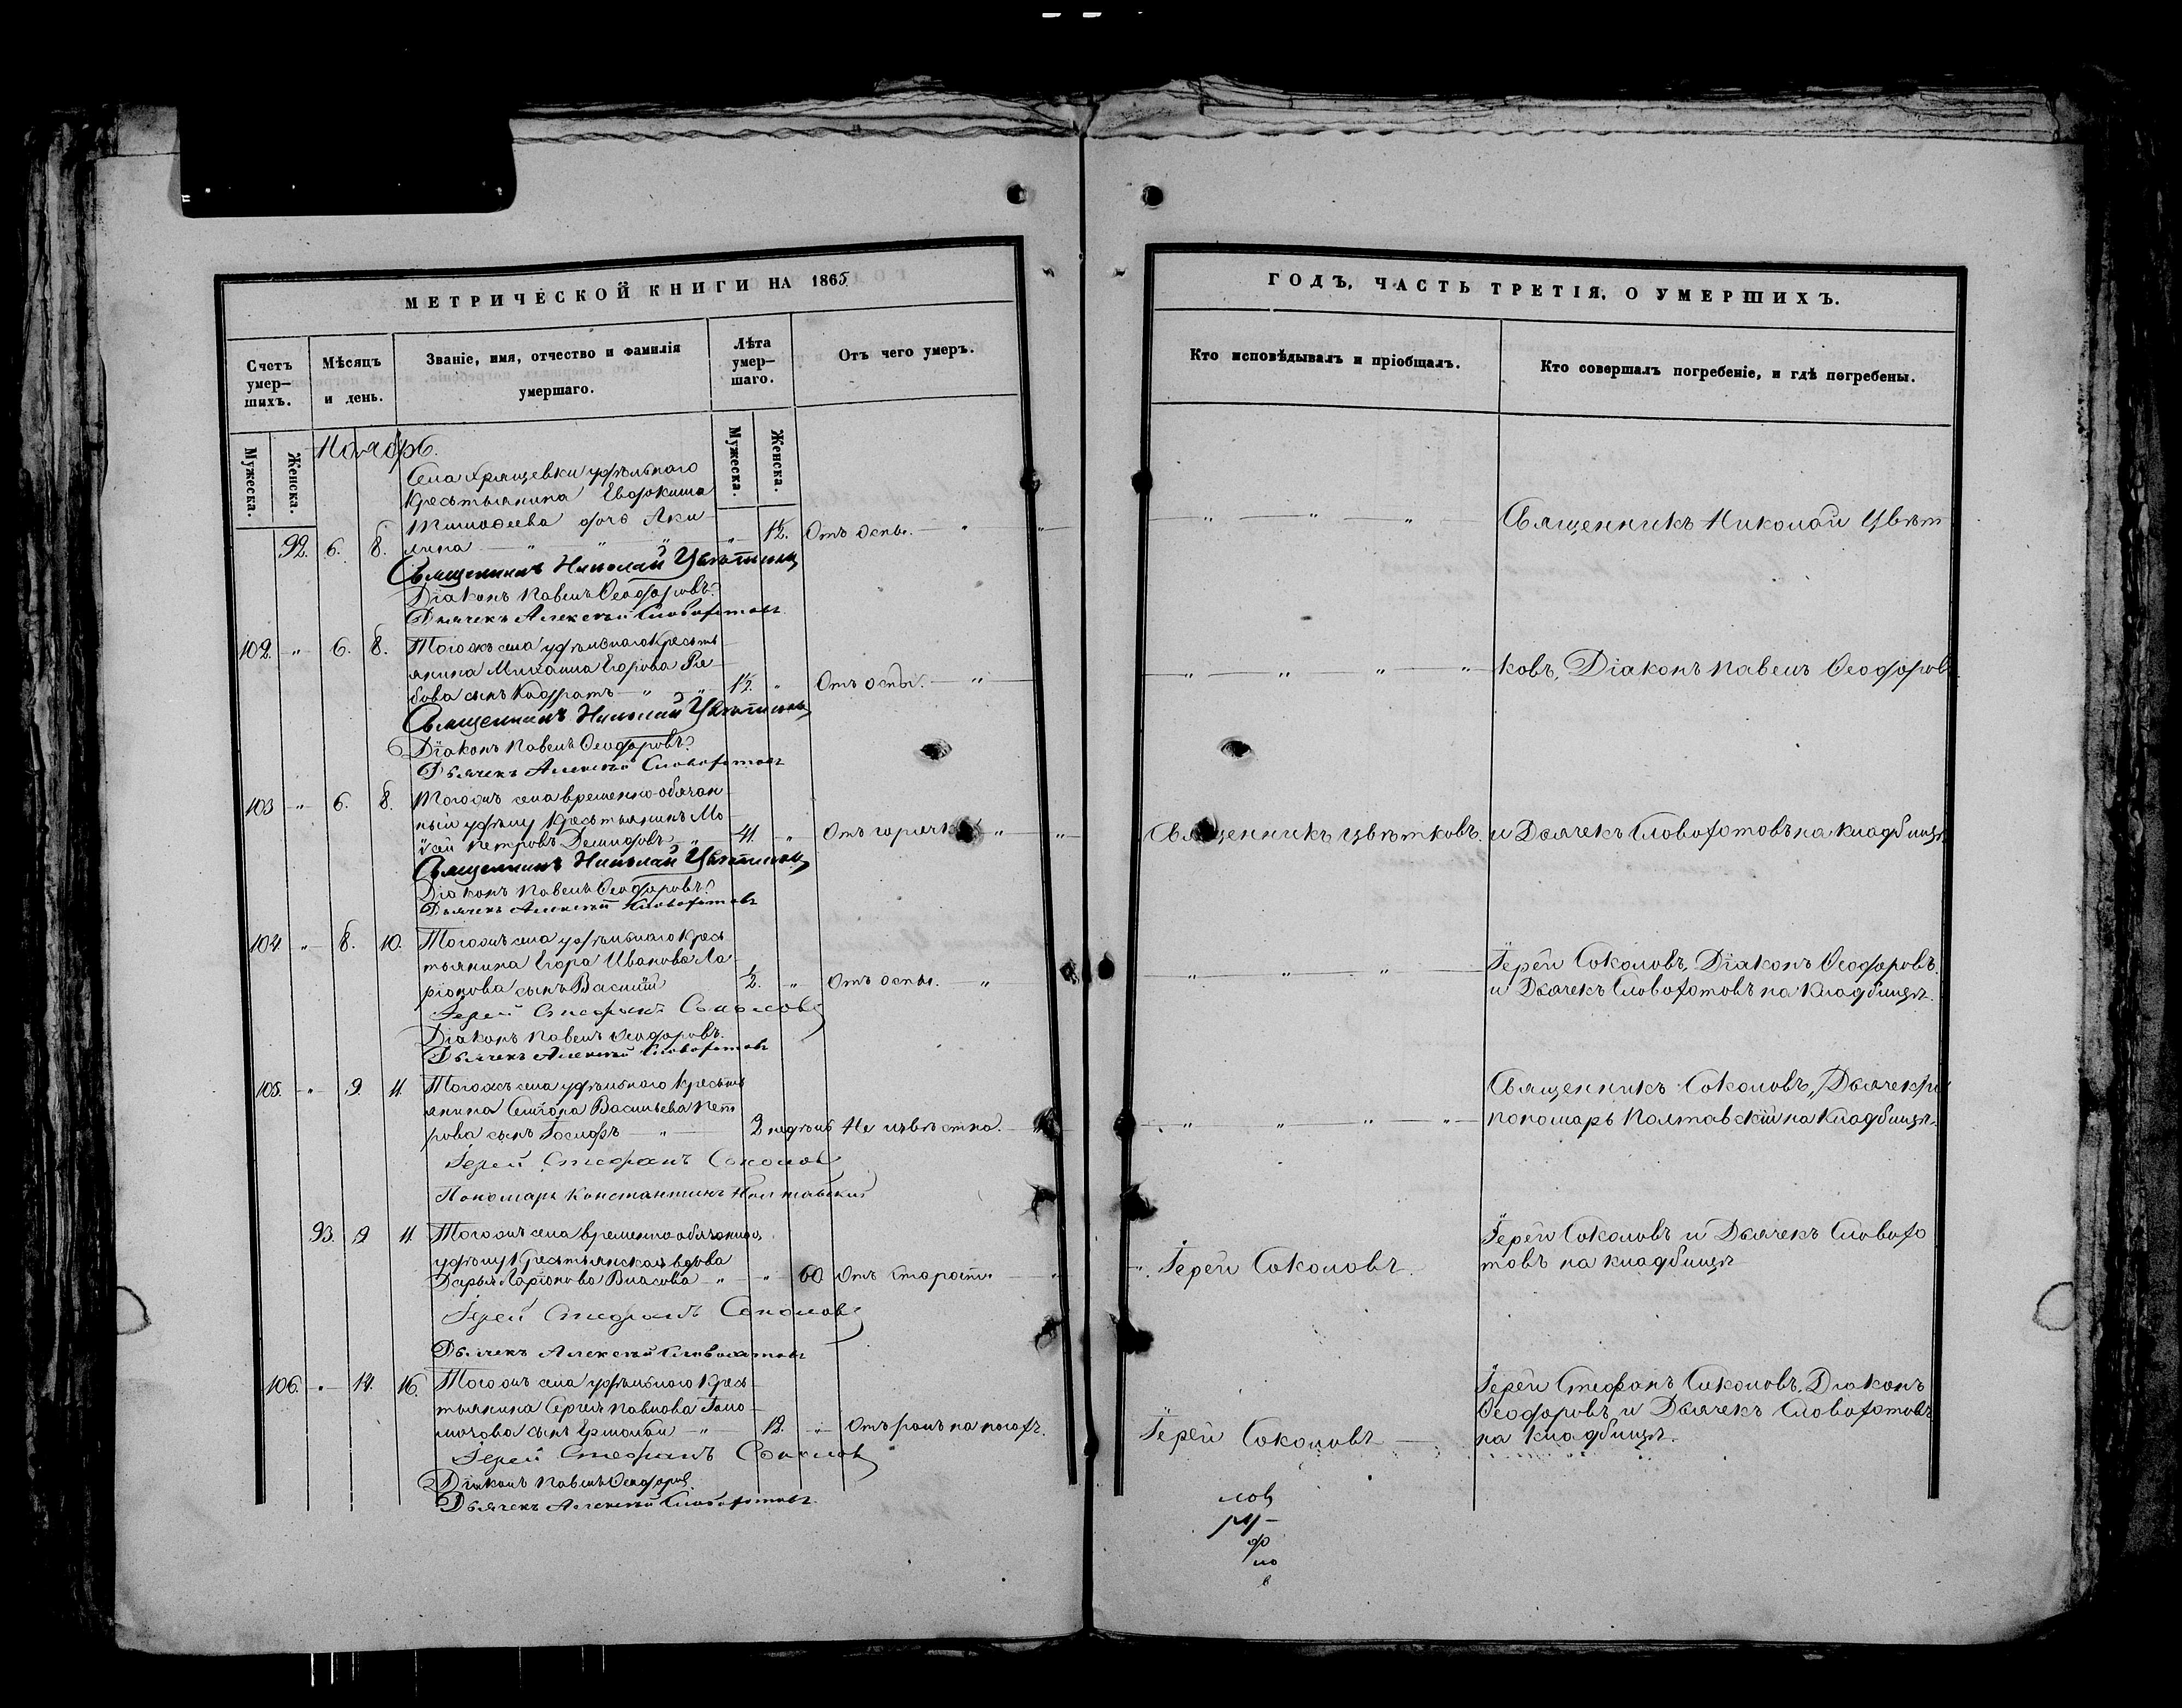 МЕТРИЧЕСКОЙ КНИГИ НА 1865
Счетъ умер-шихъ.
Мѣсяцъ и день.
Званіе, имя, отчество и фамилія умершаго.
Лѣта умер-шаго.
Отъ чего умеръ.
Мужеска.
Женска.
Мужеска.
Женска.
Ноябрь.
Села Хрящевки удѣльнаго
крестьянина Евдокима
Тимофеева дочь Аки-
92. 6. 8. лина " " " " 1½. Отъ оспы. " "
Священникъ Николай Цвѣтковъ
Діаконъ Павелъ Ѳеодоровъ.
Дьячекъ Алексѣй Словохотовъ
102. " 6. 8. Тогожъ села удѣльнаго кресть-
янина Михаила Егорова Ря-
бова сынъ Кодратъ " " 1½. " Отъ оспы. "
Священникъ Николай Цвѣтковъ
Діаконъ Павелъ Ѳеодоровъ.
Дьячекъ Алексѣй Словохотовъ
103 " 6. 8. Тогожъ села временно-обязан-
ный удѣлу крестьянинъ Мо-
ѵсей Петровъ Демидовъ " 41. " Отъ горячки " "
Священникъ Николай Цвѣтковъ
Діаконъ Павелъ Ѳеодоровъ.
Дьячекъ Алексѣй Словохотовъ
104. " 8. 10. Тогожъ села удѣльнаго кресть-
тьянина Егора Иванова Ла-
ріонова сынъ Василій ½. " Отъ оспы. "
Іерей Стефанъ Соколовъ
Діаконъ Павелъ Ѳеодоровъ.
Дьячекъ Алексѣй Словохотовъ
105. " 9. 11. Тогожъ села удѣльнаго кресть-
янина Васильева Пет-
рова сынъ Іосифъ " 2 недѣль Не извѣстно.
Іерей Стефанъ Соколовъ
Пономарь Константинъ Полтавскій
93. 9 11 Тогожъ села временно-обязанная
удѣлу крестьянская вдова
Дарья Ларіонова Власова " " 60 Отъ старости
Іерей Стефанъ Соколовъ
Дьячекъ Алексѣй Словохотовъ
106. " 14. 16. Тогожъ села удѣльнаго кресть-
тьянина Сергея Павлова
сынъ Ермолай " 12. " Отъ ранъ на ногахъ.
Іерей Стефанъ Соколовъ
Діаконъ Павелъ Ѳеодоровъ
Дьячекъ Алексѣй Словохотовъ.
ГОДЪ, ЧАСТЬ ТРЕТІЯ, О УМЕРШИХЪ.
Кто исповѣдывалъ и пріобщалъ.
Кто совершалъ погребеніе, и гдѣ погребены.
" " " Священникъ Николай Цвѣт
" " " " ковъ, Діаконъ Павелъ Ѳеодоровъ
Священникъ Цвѣтковъ. и Дьячекъ Словохотовъ на кладбищѣ.
Іерей Соколовъ, Діаконъ Ѳеодоровъ
" " " и Дьячекъ Словохотовъ на кладбищѣ.
Священникъ Соколовъ,
" " " " пономарь Полтавскій на кладбищѣ.
Іерей Соколовъ и Дьячекъ Словохо
Іерей Соколовъ. товъ на кладбищѣ
Іерей Стефанъ Соколовъ, Діаконъ
Ѳеодоровъ и Дьячекъ Словохотовъ
Іерей Соколовъ на кладбищѣ.